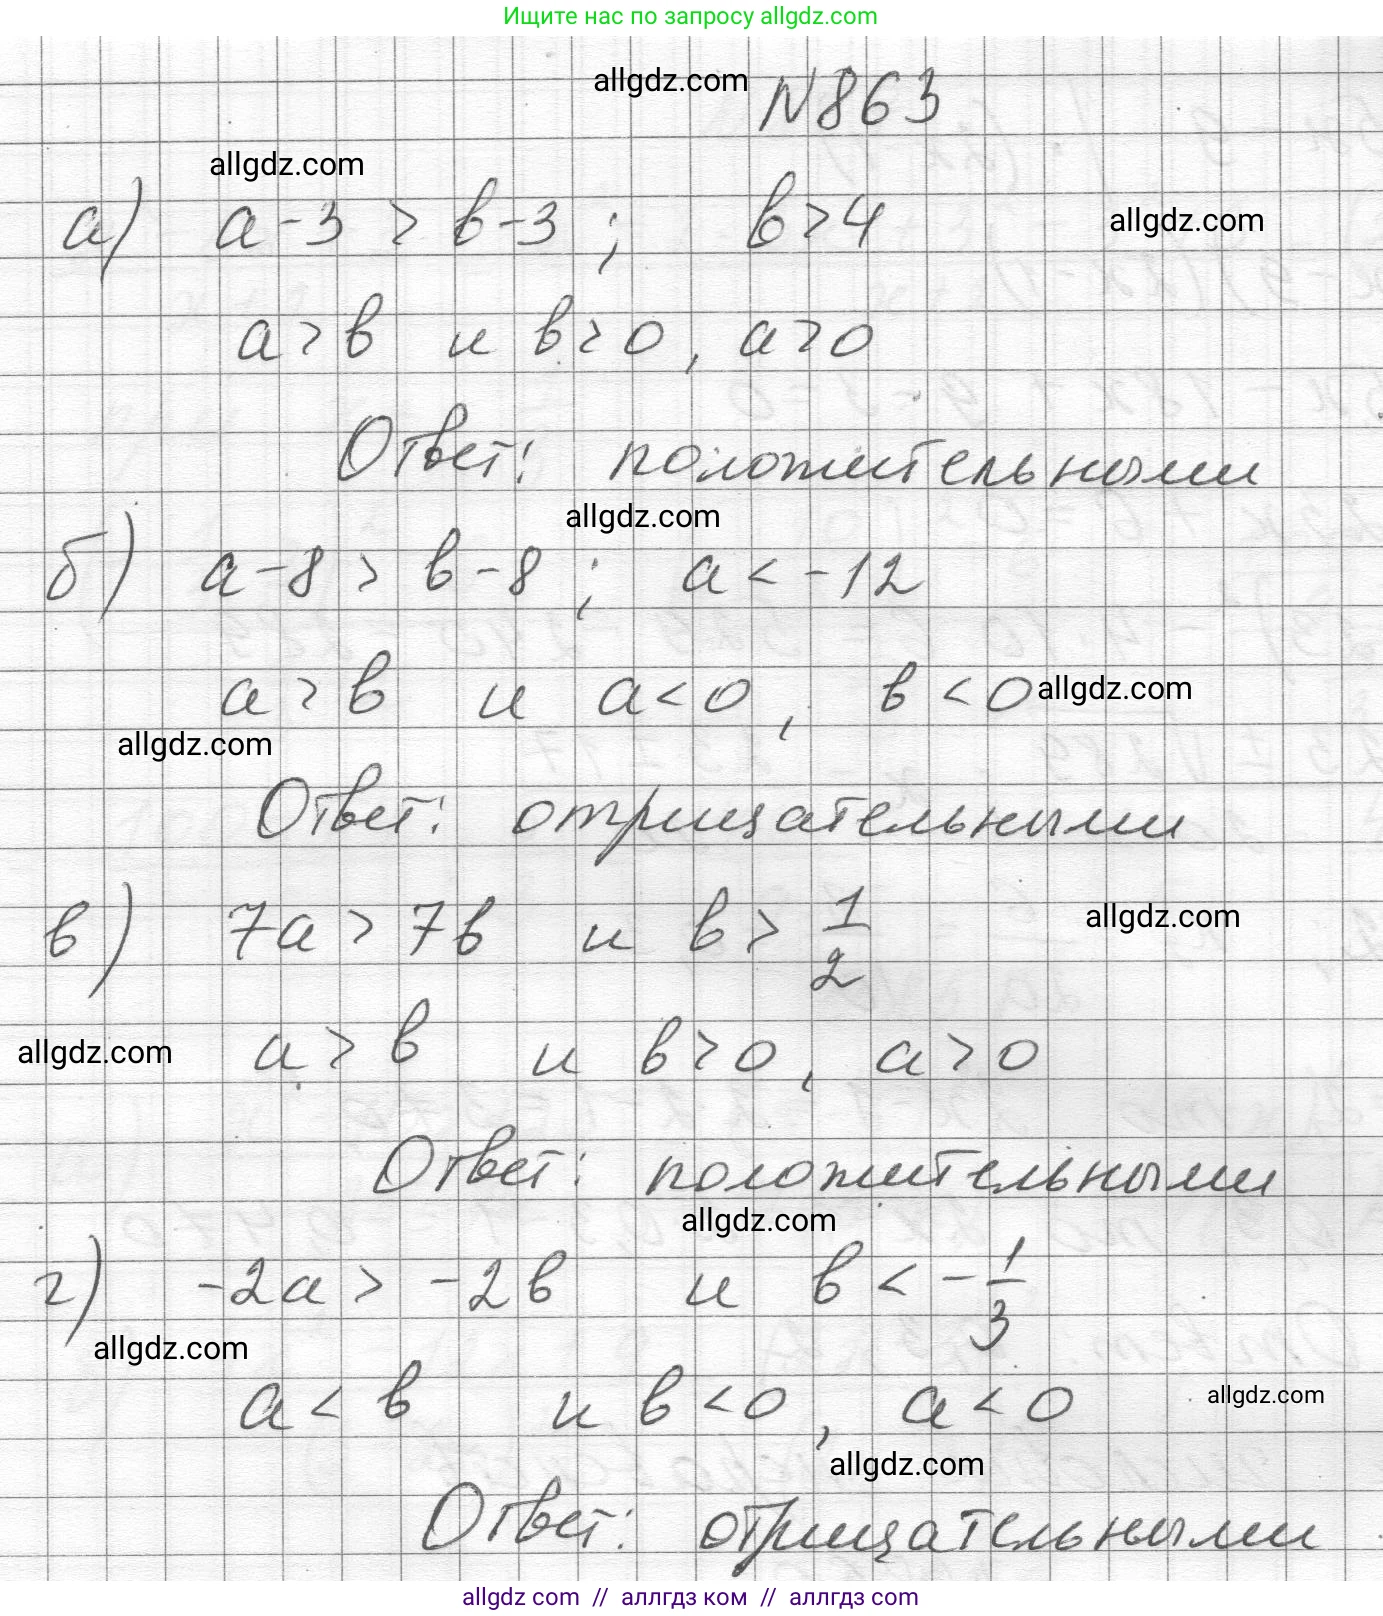 Ищите нас по запросу allgdz.com
allgdz.com
N863
allgdz.com
а) a-3 > b-3 ; b>4
allgdz.com
a>b и b>0, a>0
Ответ: положительными
allgdz.com
б) a-8 > b-8 ; a < -12
a>b и a<0, b<0
allgdz.com
allgdz.com
Ответ: отрицательными
в) 7a > 7b и b > 1/2
allgdz.com
allgdz.com
a > b и b>0, a>0
Ответ: положительными
allgdz.com
г) -2a > -2b и b < -1/3
allgdz.com
a < b и b<0, a<0
allgdz.com
allgdz.com
Ответ: отрицательными
allgdz com // аллгдз ком // аллгдз com